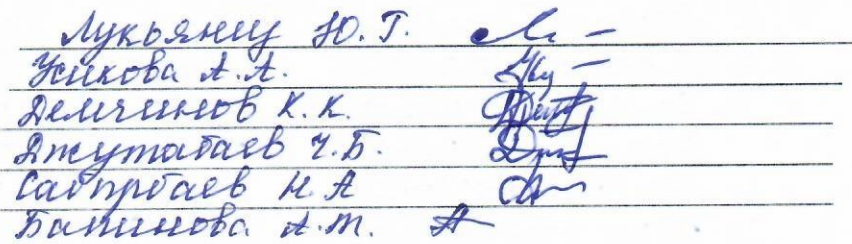 Лукьянец Ю.Г.
Усикова А.А.
Демчинов К.К.
Джутабаев Ч.Б.
Сабырбаев Н.А
Батинова А.Т.